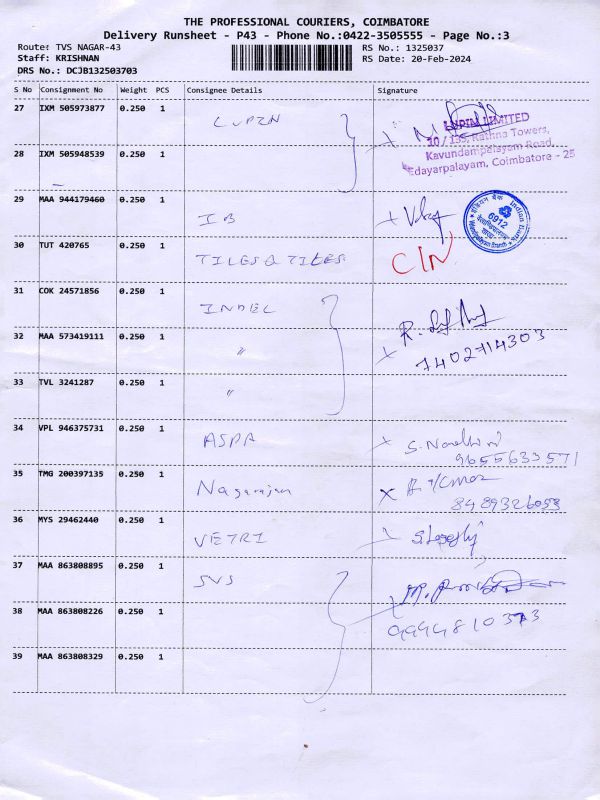 THE PROFESSIONAL COURIERS, COIMBATORE
Delivery Runsheet - P43 - Phone No.:0422-3505555 - Page No.:3
Route: TVS NAGAR-43 RS No.: 1325037
Staff: KRISHNAN RS Date: 20-Feb-2024
DRS No.: DCJB132503703
S No Consignment No Weight PCS Consignee Details Signature
27 IXM 505973877 0.250 1 LUPIN
LUPIN LIMITED
10 / 135, Rathna Towers,
Kavundampalayam Road,
Edayarpalayam, Coimbatore - 25
28 IXM 505948539 0.250 1
29 MAA 944179460 0.250 1 IB
Indian Bank
6912
30 TUT 420765 0.250 1 TILES & TILES C/N
31 COK 24571856 0.250 1 INDEL
32 MAA 573419111 0.250 1 "
7402714303
33 TVL 3241287 0.250 1 "
34 VPL 946375731 0.250 1 ASPA
9655633571
35 TMG 200397135 0.250 1 Nagarajan
8489326053
36 MYS 29462440 0.250 1 VETRI
37 MAA 863808895 0.250 1 SVS
38 MAA 863808226 0.250 1
39 MAA 863808329 0.250 1